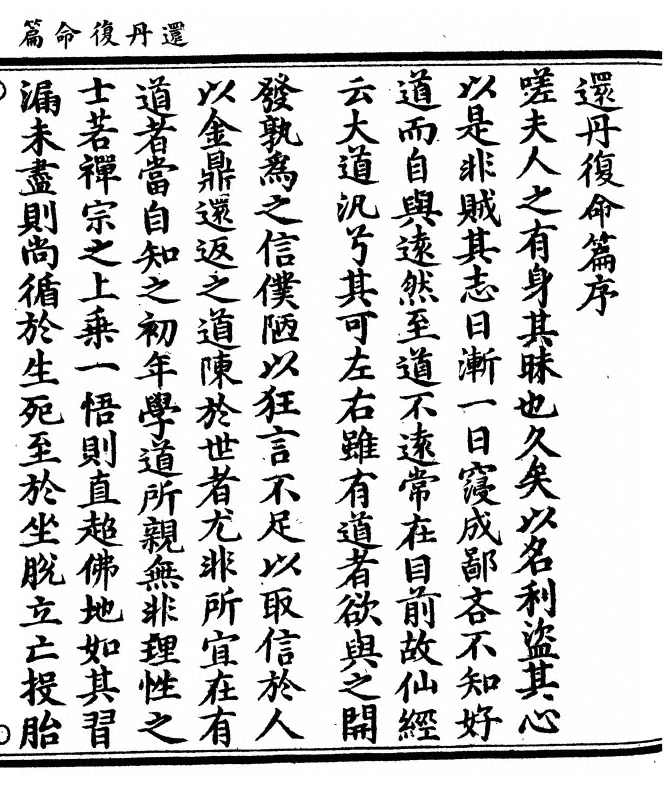 還丹復命篇
還丹復命篇序
嗟夫人之有身其昧也久矣以名利盜其心
以是非賊其志日漸一日寖成鄙吝不知好
道而自與遠然至道不遠常在目前故仙經
云大道汎兮其可左右雖有道者欲與之開
發孰爲之信僕陋以狂言不足以取信於人
以金鼎還返之道陳於世者尤非所宜在有
道者當自知之初年學道所親無非理性之
士若禪宗之上乗一悟則直超佛地如其習
漏未盡則尚循於生死至於坐脫立亡投胎